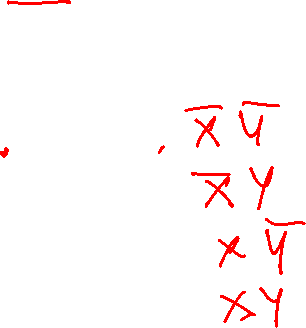 x̅ y̅
x̅ y
x y̅
x y